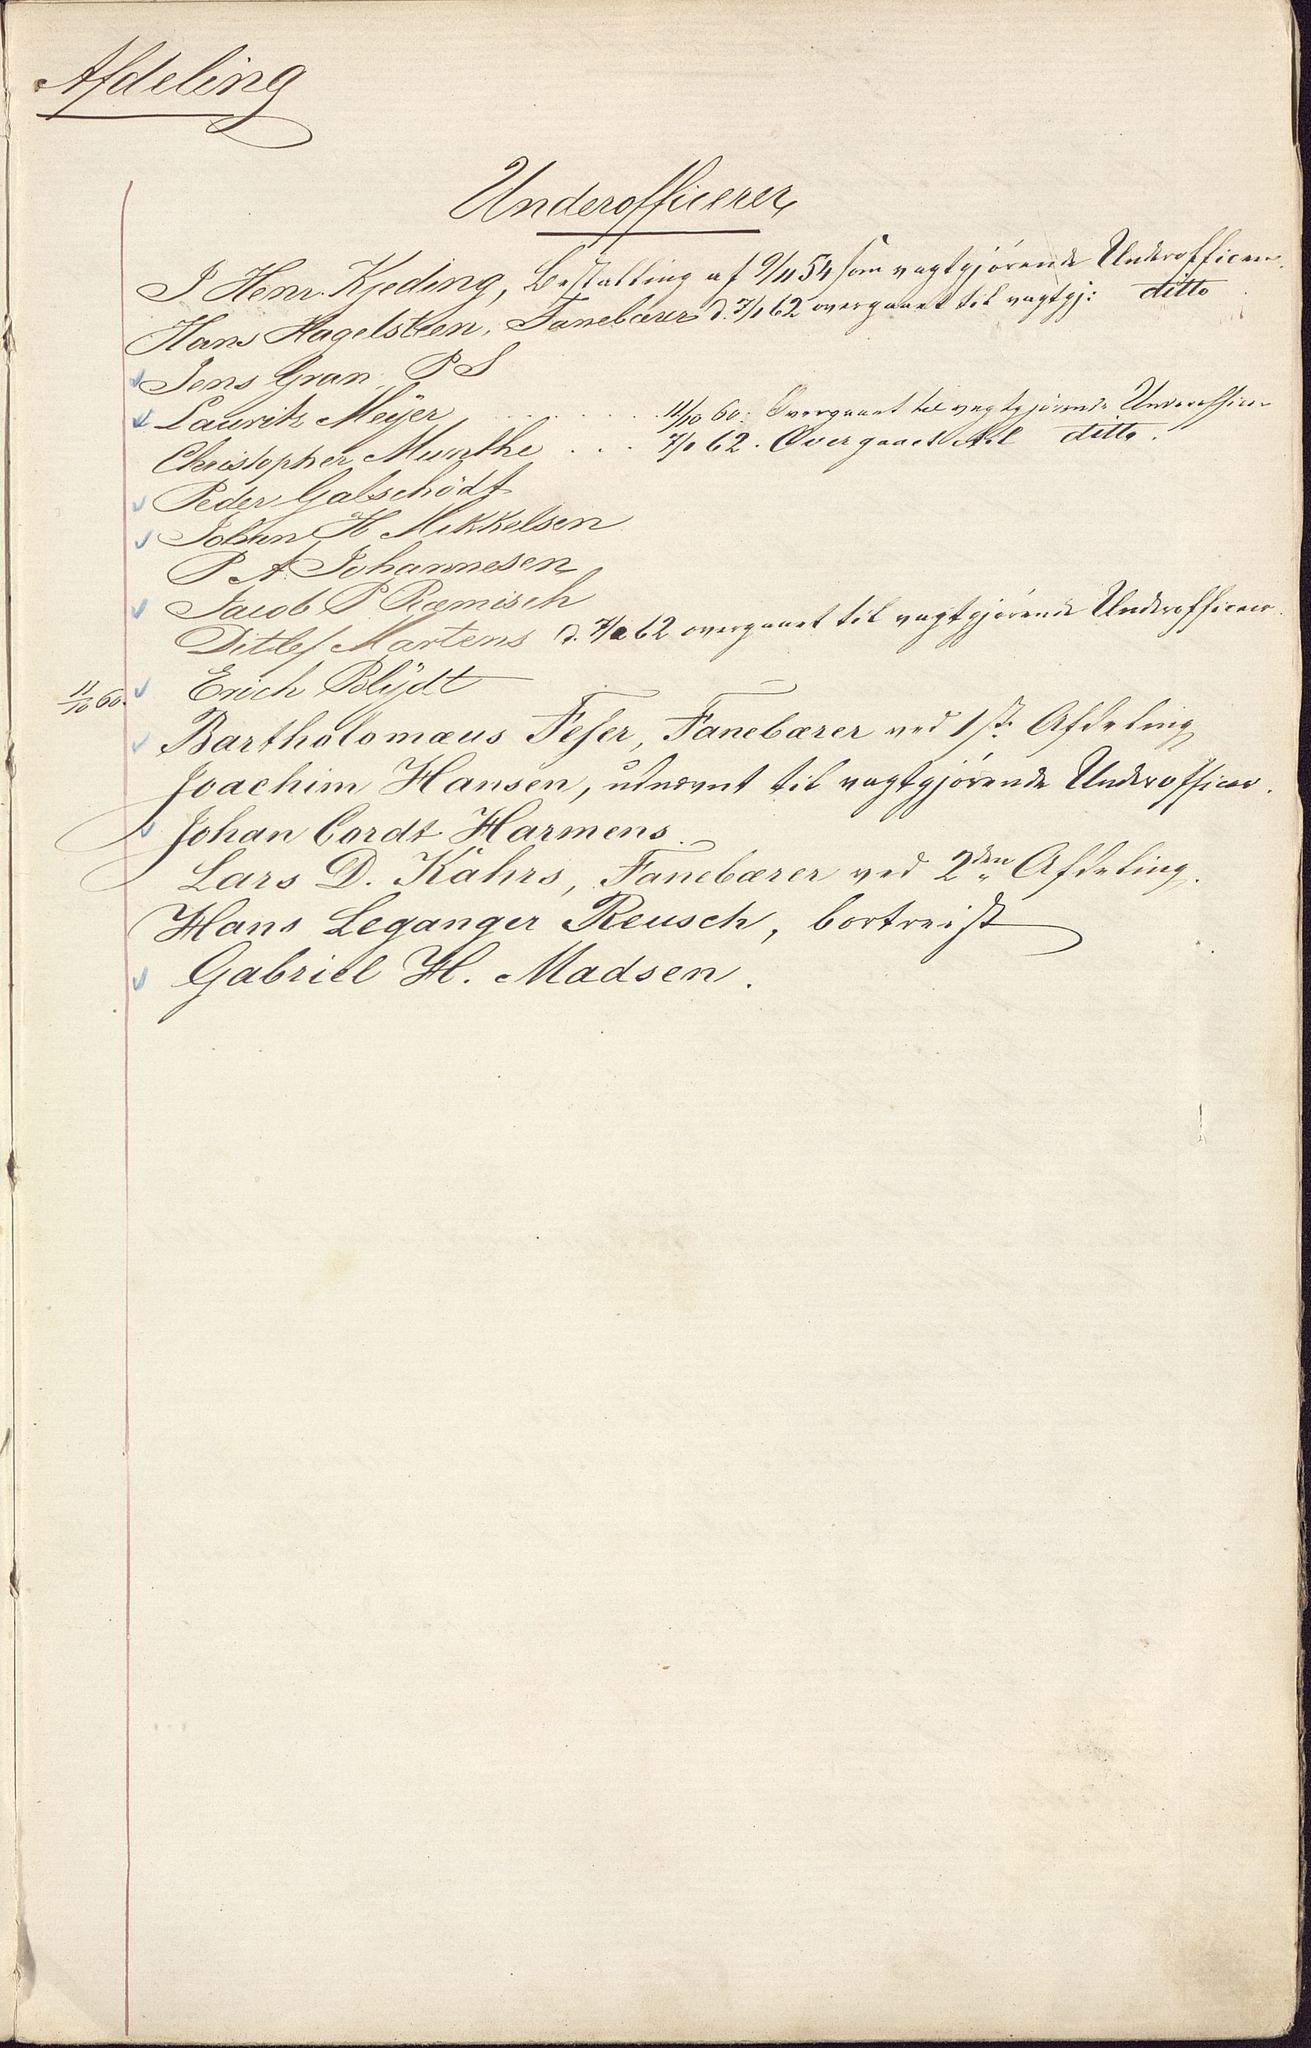 Afdeling
Underofficerer
J Henr. Kjeding, Bestalling af 9/11 54 som vagtgjørende Underofficer.
Hans Hagelsteen, Fanebærer d. 7/1 62 overgaaet til vagtgj: ditto
Jens Gran, P S
Lauritz Meÿer . . . . . . 11/10 60. Overgaaet til vagtgjørende Underofficer
Christopher Munthe . . . 7/1 62. Overgaaet til ditto.
Peder Galschödt
Johan H Mikkelsen
P A Johannesen
Jacob P Ræmisch
Ditlef Martens d. 7/1 62 overgaaet til vagtgjørende Underofficer.
Erich Blÿdt
11/10 60. Bartholomæus Feser, Fanebærer ved 1ste Afdeling
Joachim Hansen, udnævnt til vagtgjørende Underofficer.
Johan Cordt Harmens.
Lars D. Kahrs, Fanebærer ved 2den Afdeling.
Hans Leganger Reusch, bortreist
Gabriel H. Madsen.